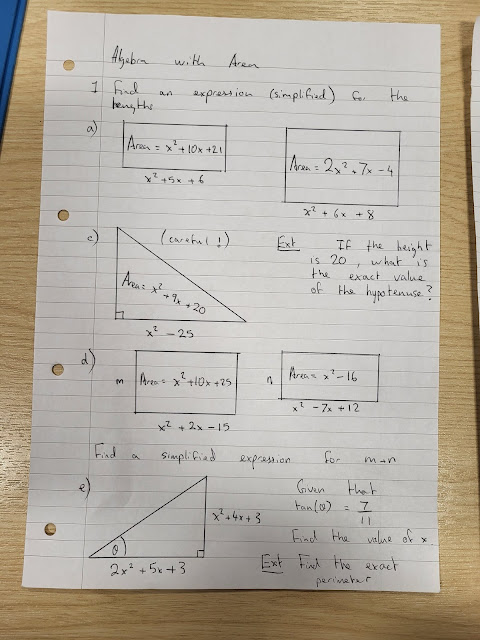 Algebra with Area
1 Find an expression (simplified) for the
lengths
a)
Area = x² + 10x + 21
x² + 5x + 6
Area = 2x² + 7x - 4
x² + 6x + 8
c)
(careful!)
Area = x² + 9x + 20
x² - 25
Ext If the height
is 20, what is
the exact value
of the hypotenuse?
d)
m
Area = x² + 10x + 25
x² + 2x - 15
n
Area = x² - 16
x² - 7x + 12
Find a simplified expression for m÷n
e)
x² + 4x + 3
θ
2x² + 5x + 3
Given that
tan(θ) = 7/11
Find the value of x.
Ext Find the exact
perimeter